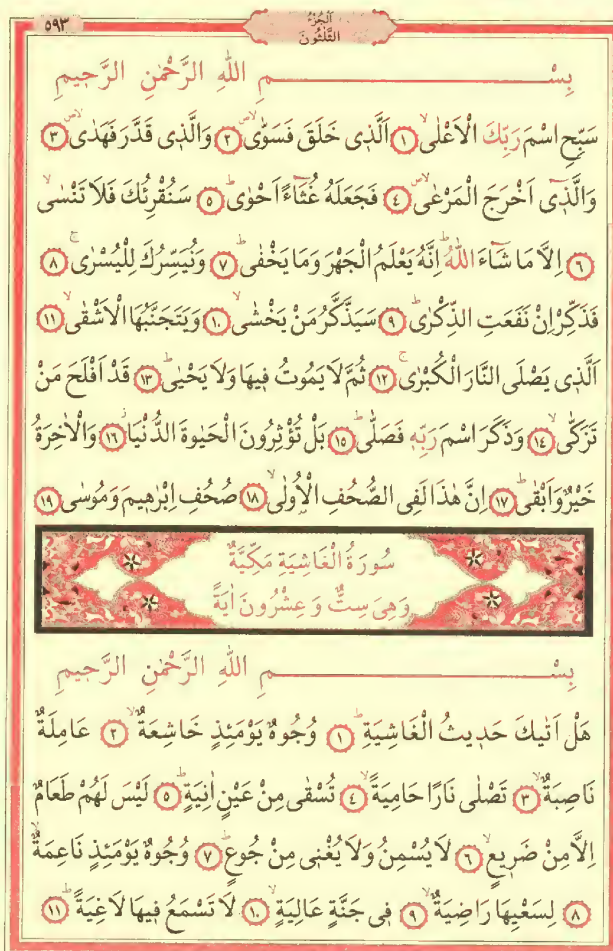 ٥٩٣
اَلْجُزْءُ
الثَّلٰثُونَ
بِسْمِ اللّٰهِ الرَّحْمٰنِ الرَّحٖيمِ
سَبِّحِ اسْمَ رَبِّكَ الْاَعْلٰىۙ ﴿١﴾ اَلَّذٖى خَلَقَ فَسَوّٰىۙۖ ﴿٢﴾ وَالَّذٖى قَدَّرَ فَهَدٰىۙۖ ﴿٣﴾
وَالَّذٖٓى اَخْرَجَ الْمَرْعٰىۙۖ ﴿٤﴾ فَجَعَلَهُ غُثَٓاءً اَحْوٰىؕ ﴿٥﴾ سَنُقْرِئُكَ فَلَا تَنْسٰىۙ
﴿٦﴾ اِلَّا مَا شَٓاءَ اللّٰهُؕ اِنَّهُ يَعْلَمُ الْجَهْرَ وَمَا يَخْفٰىؕ ﴿٧﴾ وَنُيَسِّرُكَ لِلْيُسْرٰىۚ ﴿٨﴾
فَذَكِّرْ اِنْ نَفَعَتِ الذِّكْرٰىؕ ﴿٩﴾ سَيَذَّكَّرُ مَنْ يَخْشٰىۙ ﴿١٠﴾ وَيَتَجَنَّبُهَا الْاَشْقٰىۙ ﴿١١﴾
اَلَّذٖى يَصْلَى النَّارَ الْكُبْرٰىۚ ﴿١٢﴾ ثُمَّ لَا يَمُوتُ فٖيهَا وَلَا يَحْيٰىؕ ﴿١٣﴾ قَدْ اَفْلَحَ مَنْ
تَزَكّٰىۙ ﴿١٤﴾ وَذَكَرَ اسْمَ رَبِّهٖ فَصَلّٰىؕ ﴿١٥﴾ بَلْ تُؤْثِرُونَ الْحَيٰوةَ الدُّنْيَاؗ ﴿١٦﴾ وَالْاٰخِرَةُ
خَيْرٌ وَاَبْقٰىؕ ﴿١٧﴾ اِنَّ هٰذَا لَفِى الصُّحُفِ الْاُولٰىۙ ﴿١٨﴾ صُحُفِ اِبْرٰهٖيمَ وَمُوسٰى ﴿١٩﴾
سُورَةُ الْغَاشِيَةِ مَكِّيَّةٌ
وَهِىَ سِتٌّ وَعِشْرُونَ اٰيَةً
بِسْمِ اللّٰهِ الرَّحْمٰنِ الرَّحٖيمِ
هَلْ اَتٰيكَ حَدٖيثُ الْغَاشِيَةِؕ ﴿١﴾ وُجُوهٌ يَوْمَئِذٍ خَاشِعَةٌۙ ﴿٢﴾ عَامِلَةٌ
نَاصِبَةٌۙ ﴿٣﴾ تَصْلٰى نَارًا حَامِيَةًۙ ﴿٤﴾ تُسْقٰى مِنْ عَيْنٍ اٰنِيَةٍؕ ﴿٥﴾ لَيْسَ لَهُمْ طَعَامٌ
اِلَّا مِنْ ضَرٖيعٍۙ ﴿٦﴾ لَا يُسْمِنُ وَلَا يُغْنٖى مِنْ جُوعٍؕ ﴿٧﴾ وُجُوهٌ يَوْمَئِذٍ نَاعِمَةٌۙ
﴿٨﴾ لِسَعْيِهَا رَاضِيَةٌۙ ﴿٩﴾ فٖى جَنَّةٍ عَالِيَةٍۙ ﴿١٠﴾ لَا تَسْمَعُ فٖيهَا لَاغِيَةًؕ ﴿١١﴾